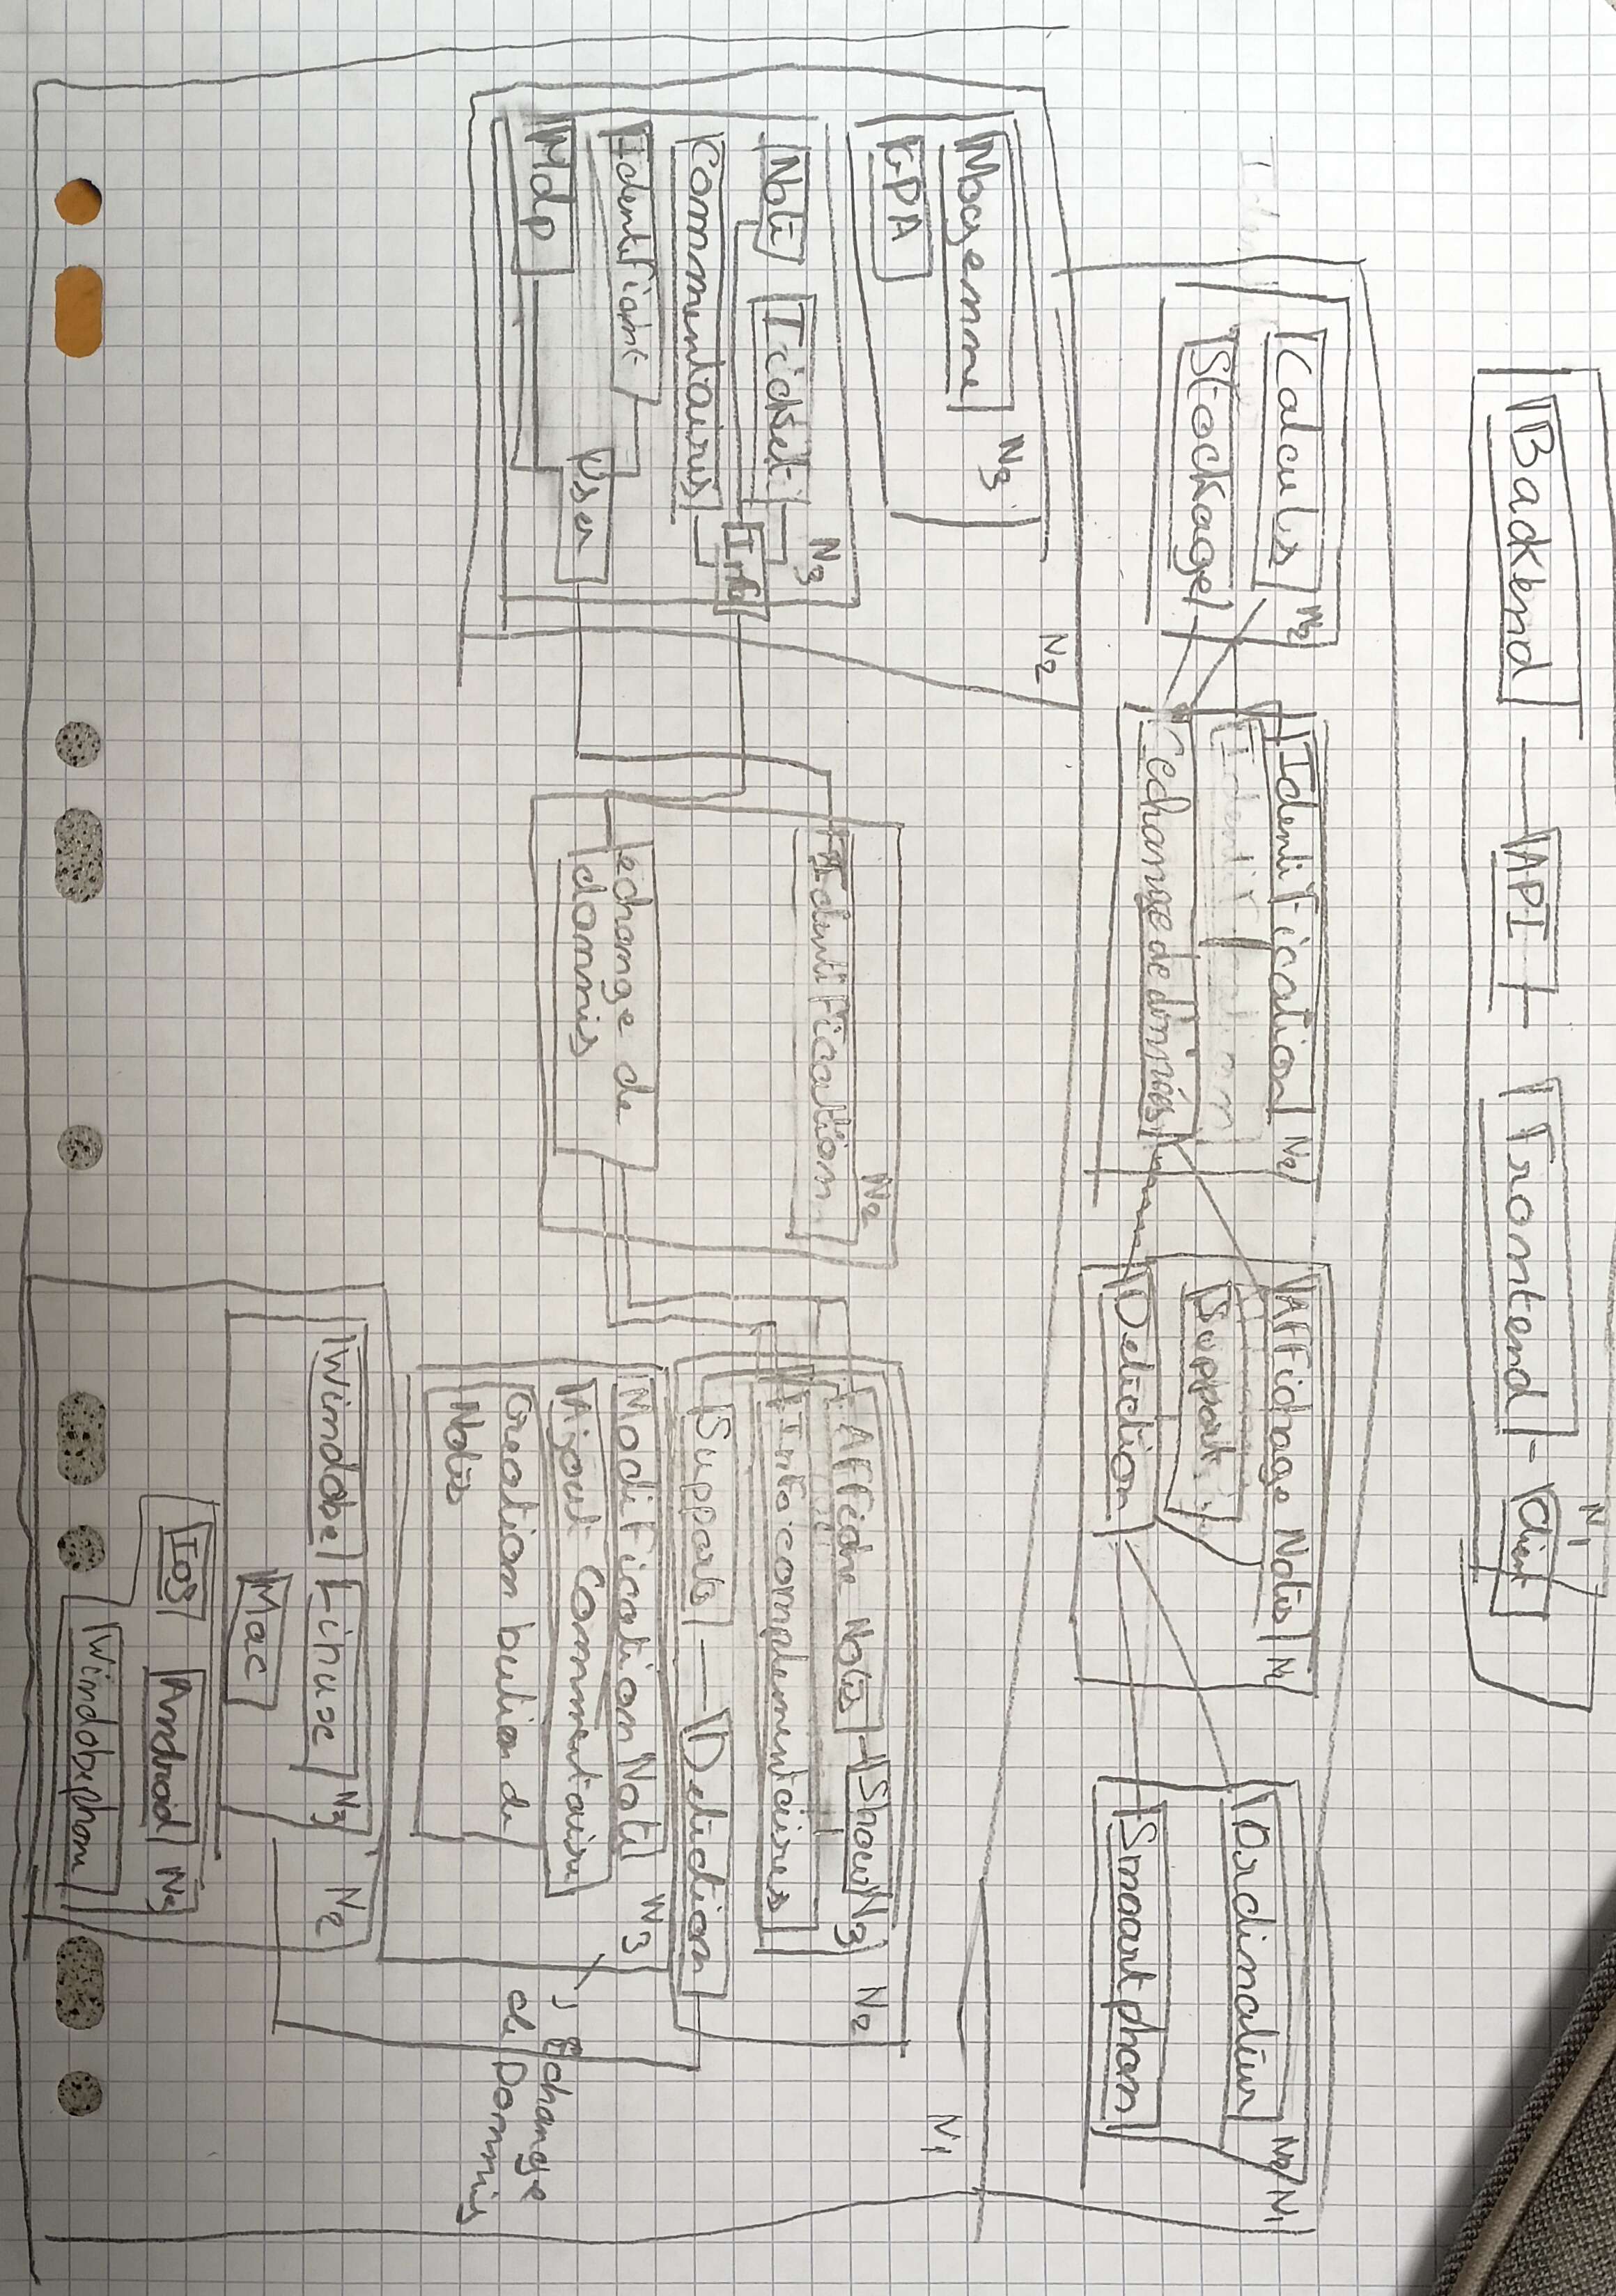 Backend API Frontend Client N1
Calculs N2
Stockage
Identification N2
echange de donnés
Affichage Notes N2
Support
Detection
Ordinateur N2 N1
Smartphon
N2
Moyenne N3
GPA
Note Ticket N3
Commentaires Info
Identifiant
Mdp User
Identification N2
echange de
donnés
N1
Affiche Notes Show N3 N2
Info complementaires
Supports Detection
Modification Note N3
Ajout Commentaire
Creation bulien de
Notes
Echange
de Donnés
Windobe Linux N3 N2
Mac
Ios Android N3
Windobephon